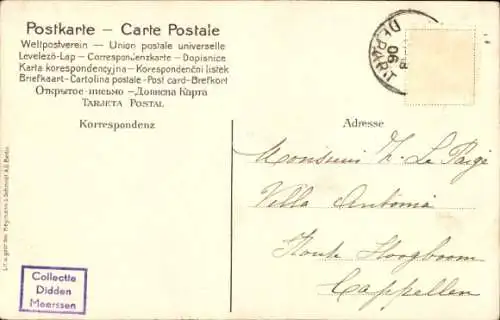 Postkarte — Carte Postale
Weltpostverein — Union postale universelle
Levelezö-Lap — Correspondenzkarte — Dopisnice
Karta korespondencyjna — Korespondenční listek
Briefkaart - Cartolina postale - Post card - Brefkort
Открытое письмо — Дописна Карта
Tarjeta Postal
DEPART
06
Korrespondenz
Adresse
Monsieur L. Le Paige
Villa Antonia
Route Hoogboom
Cappellen
Collectie
Didden
Meerssen